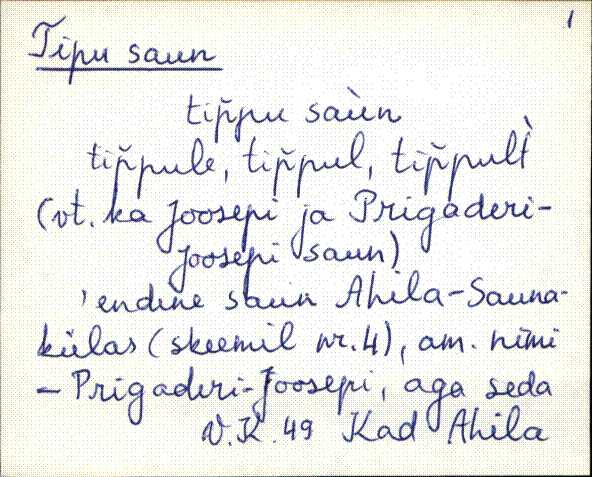 1
Tipu saun
tip̆pu saùn
tip̆pule, tip̆pul, tip̆pult̀
(vt. ka Joosepi ja Prigaderi-
Joosepi saun)
'endine saun Ahila-Sauna-
külas (skeemil nr. 4), am. nimi
- Prigaderi-Joosepi, aga seda
V.K. 49 Kad Ahila